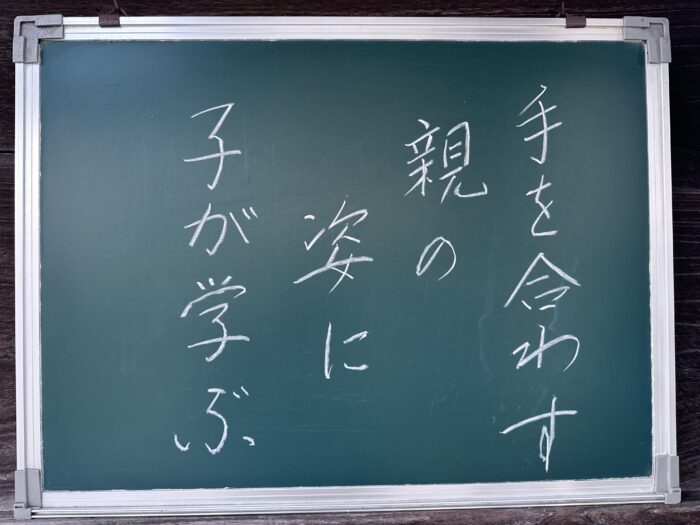 手を合わす
親の
姿に
子が学ぶ